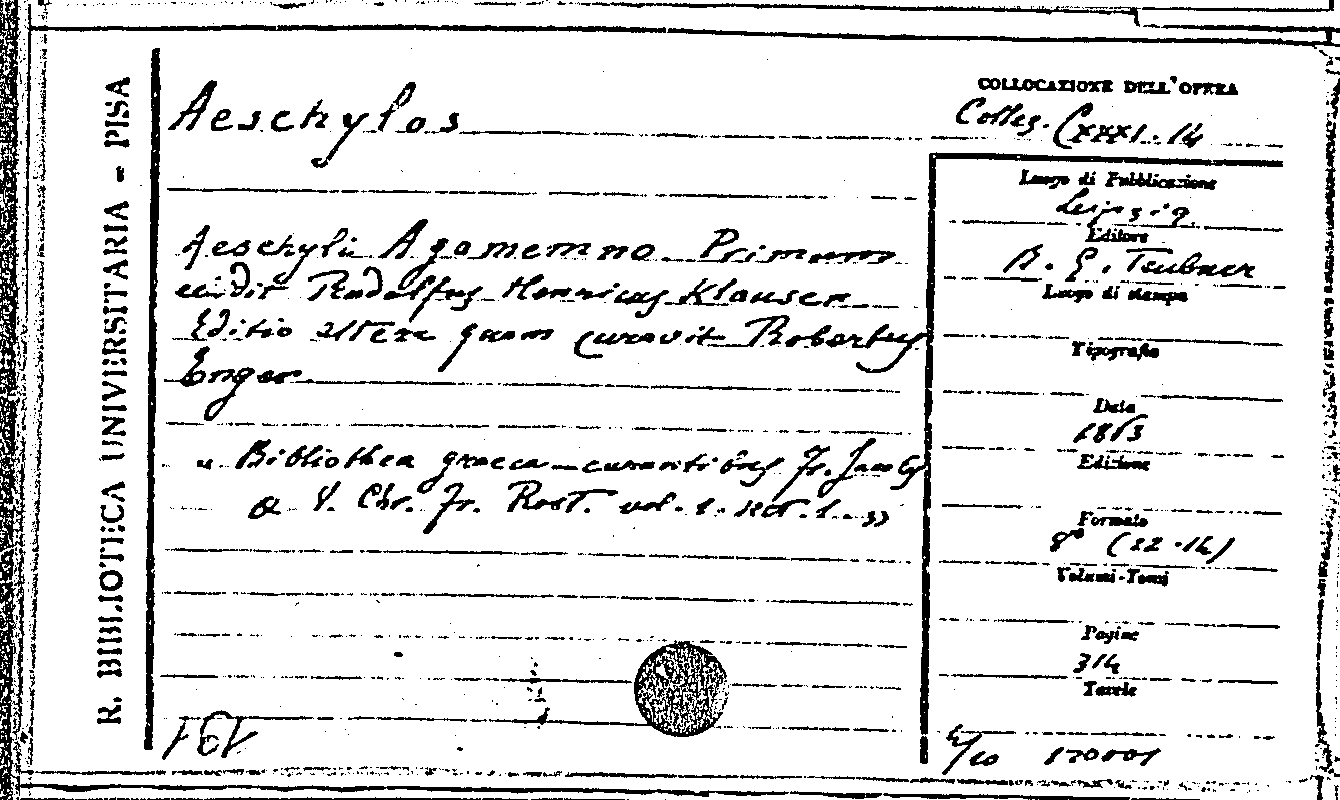 R. BIBLIOTECA UNIVERSITARIA - PISA
Aeschylos
COLLOCAZIONE DELL'OPERA
Colleg. CXXXI. 14
Aeschyli Agamemno. Primum
edidit Rudolfus Henricus Klausen
Editio altera quam curavit Robertus
Enger
" Bibliotheca graeca - curantibus Fr. Jacobs
& V. Chr. Fr. Rost. vol. 1. sect. 1. "
Luogo di Pubblicazione
Leipzig
Editore
B. G. Teubner
Luogo di stampa
Tipografia
Data
1863
Edizione
Formato
8° (22·14)
Volumi-Tomi
Pagine
314
Tavole